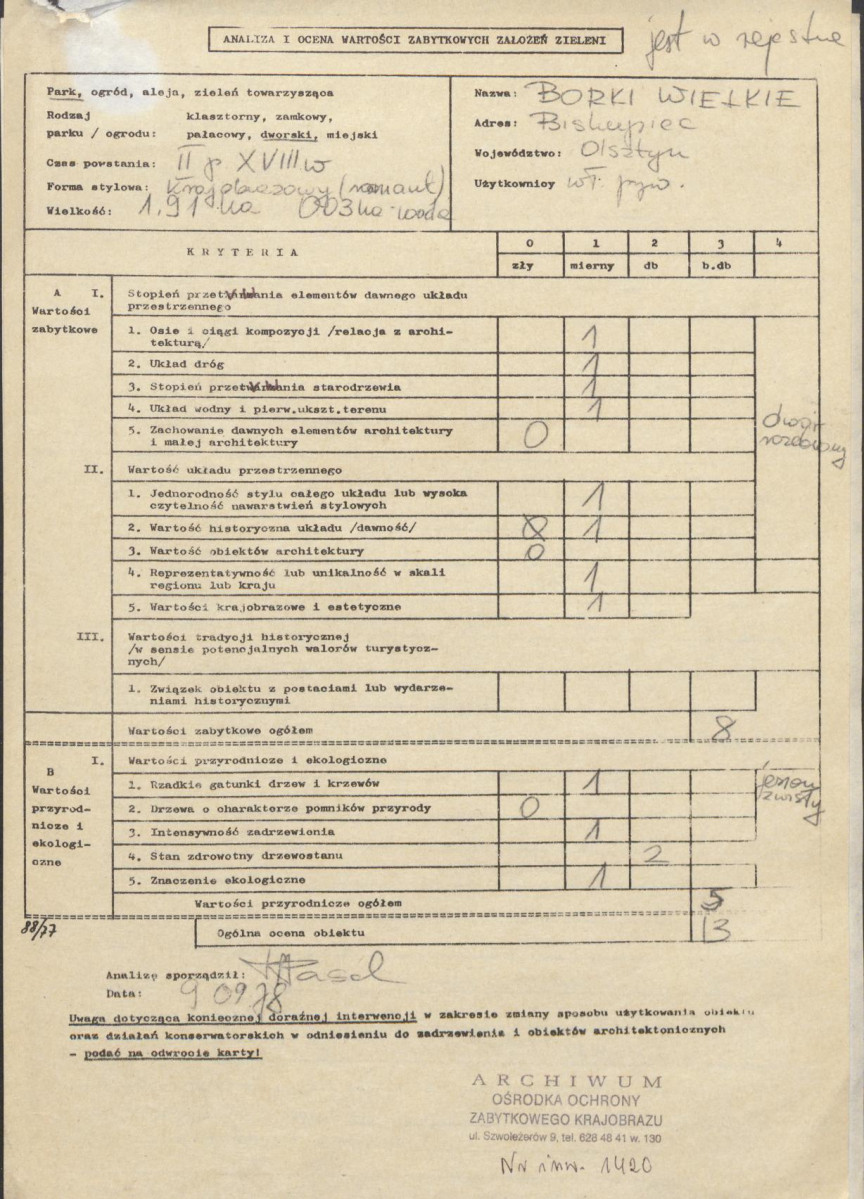 jest w rejestrze
ANALIZA I OCENA WARTOŚCI ZABYTKOWYCH ZAŁOŻEŃ ZIELENI
Park, ogród, aleja, zieleń towarzysząca
Rodzaj klasztorny, zamkowy,
parku / ogrodu: pałacowy, dworski, miejski
Czas powstania: II p XVIII w
Forma stylowa: krajobrazowy (romant)
Wielkość: 1,91 ha 003 ha - woda
Nazwa: BORKI WIELKIE
Adres: Biskupiec
Województwo: Olsztyn
Użytkownicy wł. pryw.
KRYTERIA 0 1 2 3 4
zły mierny db b.db
A I. Stopień przetrwania elementów dawnego układu
Wartości przestrzennego
zabytkowe 1. Osie i ciągi kompozycji /relacja z archi-
tekturą/ 1
2. Układ dróg 1
3. Stopień przetrwania starodrzewia 1
4. Układ wodny i pierw.ukszt.terenu 1
5. Zachowanie dawnych elementów architektury
i małej architektury 0
dwór
II. Wartość układu przestrzennego
1. Jednorodność stylu całego układu lub wysoka
czytelność nawarstwień stylowych 1
2. Wartość historyczna układu /dawność/ 1
3. Wartość obiektów architektury 0
4. Reprezentatywność lub unikalność w skali
regionu lub kraju 1
5. Wartości krajobrazowe i estetyczne 1
III. Wartości tradycji historycznej
/w sensie potencjalnych walorów turystycz-
nych/
1. Związek obiektu z postaciami lub wydarze-
niami historycznymi
Wartości zabytkowe ogółem 8
I. Wartości przyrodnicze i ekologiczne
B
Wartości 1. Rzadkie gatunki drzew i krzewów 1 jesion
zwisły
przyrod- 2. Drzewa o charakterze pomników przyrody 0
nicze i 3. Intensywność zadrzewienia 1
ekologi- 4. Stan zdrowotny drzewostanu 2
czne 5. Znaczenie ekologiczne 1
Wartości przyrodnicze ogółem 5
88/77 Ogólna ocena obiektu 13
Analizę sporządził:
Data: 9 09 78
Uwaga dotycząca koniecznej doraźnej interwencji w zakresie zmiany sposobu użytkowania obiektu
oraz działań konserwatorskich w odniesieniu do zadrzewienia i obiektów architektonicznych
- podać na odwrocie karty!
ARCHIWUM
OŚRODKA OCHRONY
ZABYTKOWEGO KRAJOBRAZU
ul. Szwoleżerów 9, tel. 628 48 41 w. 130
Nr inw. 1420